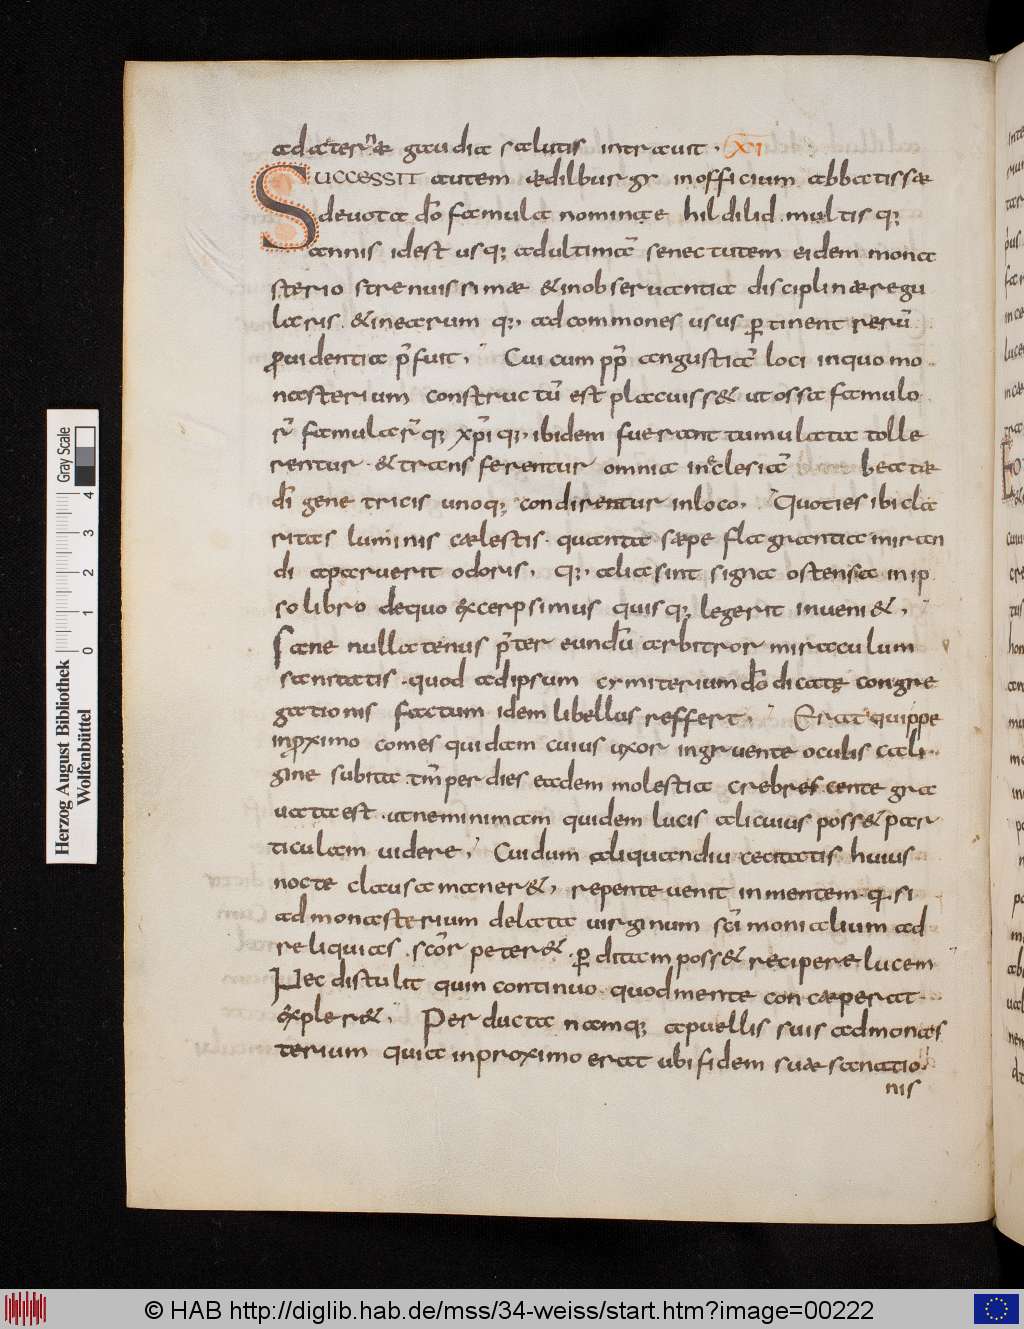 ad aeternae gaudia salutis intrauit. XI
SUCCESSIT autem aedilburgi in officium abbatissae
deuota dō famula nomine hildilid. multisq;
annis id est usq; ad ultimā senectutem eidem mona
sterio strenuissimae & in obseruantia disciplinae regu
laris. & in earum q; ad commones usus ꝑtinent rerū
ꝓuidentia p̄fuit; Cui cum ꝓp̄ angustiā loci in quo mo
nasterium constructū est placuiss& ut ossa famulo
rū famularūq; xp̄iq; ibidem fuerant tumulata tolle
rentur & transferentur omnia in eclesiā beatae
dī genetricis unoq; condirentur in loco; Quoties ibi cla
ritas luminis caelestis. quanta saepe flagrantia miran
di aparuerit odoris, q; alia sint signa ostensa in ip
so libro de quo excerpsimus quisq; legerit inueni&;
Sane nullatenus p̄ter eundū arbitror miraculum
sanitatis. quod ad ipsum cymiterium dō dicatę congre
gationis factum idem libellus reffert; Erat quippe
in ꝓximo comes quidam cuius uxor ingruente oculis cali
gine subita. tm̄ per dies eadem molestia crebrescente gra
uata est. ut ne minimam quidem lucis alicuius poss& par
ticulam uidere; Cui dum aliquandiu cecitatis huius
nocte clausa maner&, repente uenit in mentem q. si
ad monasterium delata uirginum sc̄imonialium ad
reliquias scōr peter&. ꝑditam poss& recipere lucem
Nec distulit quin continuo quod mente concaeperat
expler&; Perducta namq; a puellis suis ad monas
terium quia in proximo erat ubi fidem suae sanatio
nis
Herzog August Bibliothek
Wolfenbüttel
Gray Scale
0 1 2 3 4
© HAB http://diglib.hab.de/mss/34-weiss/start.htm?image=00222